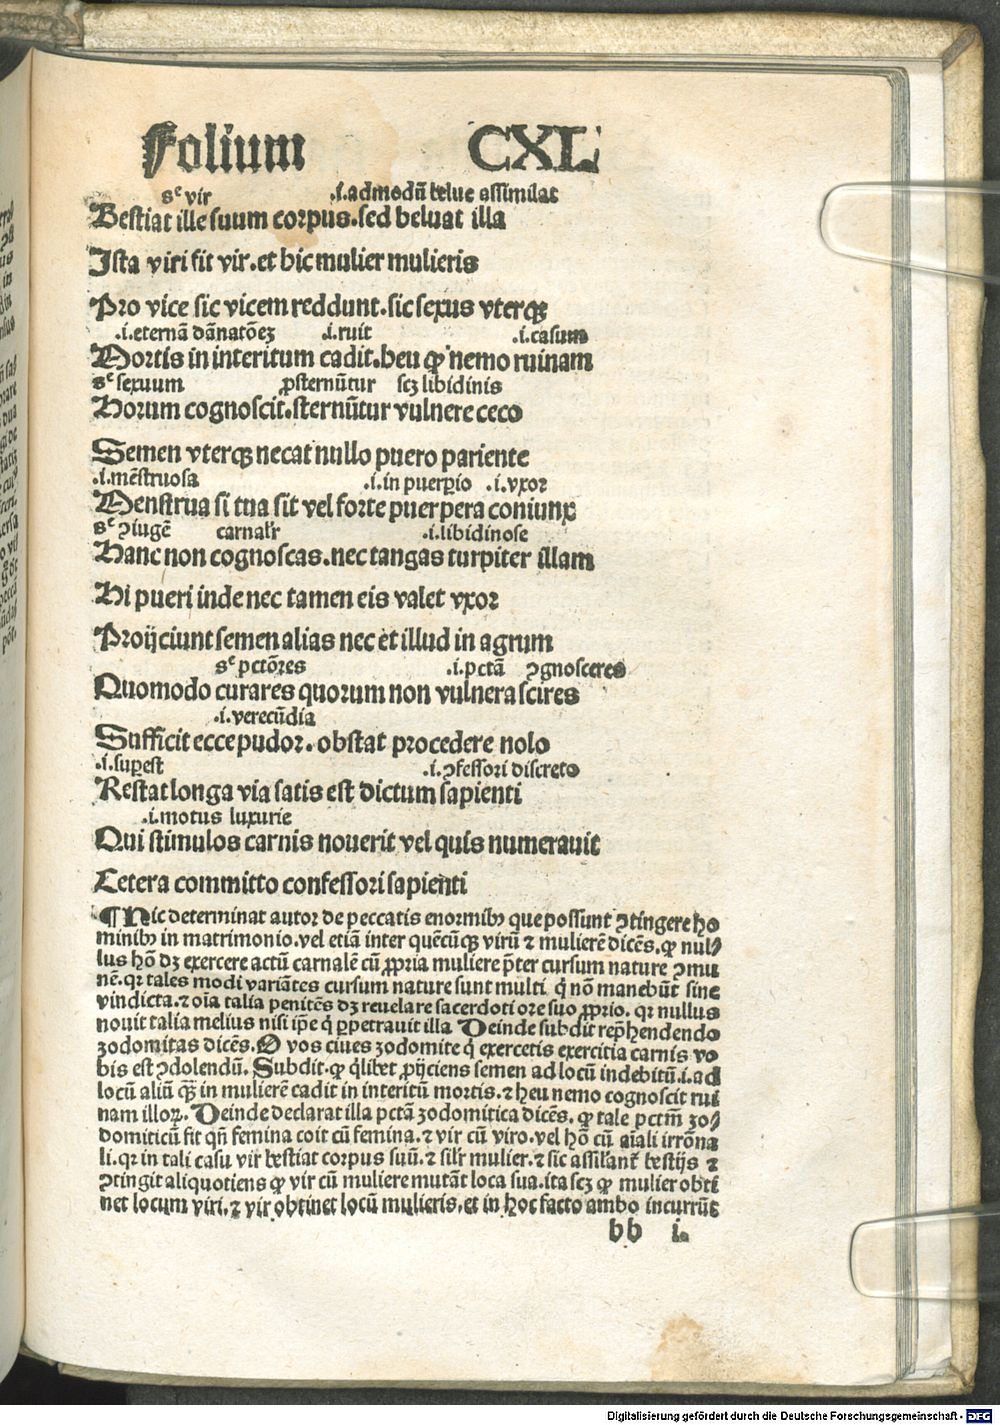 Folium CXL
sᶜ vir .i. admodū belue assimilat
Bestiat ille suum corpus. sed beluat illa
Ista viri fit vir. et hic mulier mulieris
Pro vice sic vicem reddunt. sic sexus vterqꝫ
.i. eternā dānatōeꝫ .i. ruit .i. casum
Mortis in interitum cadit. heu ꝙ nemo ruinam
sᶜ sexuum ꝓsternūtur scꝫ libidinis
Horum cognoscit. sternūtur vulnere ceco
Semen vterqꝫ necat nullo puero pariente
.i. mēstruosa .i. in puerꝑio .i. vxor
Menstrua si tua sit vel forte puerpera coniunx
sᶜ ꝯiugē carnalr̄ .i. libidinose
Hanc non cognoscas. nec tangas turpiter illam
Hi pueri inde nec tamen eis valet vxor
Proijciunt semen alias nec et illud in agrum
sᶜ pctōres .i. pctā ꝯgnosceres
Quomodo curares quorum non vulnera scires
.i. verecūdia
Sufficit ecce pudor. obstat procedere nolo
.i. suꝑest .i. ꝯfessori discreto
Restat longa via satis est dictum sapienti
.i. motus luxurie
Qui stimulos carnis nouerit vel quis numerauit
Cetera committo confessori sapienti
¶ Hic determinat autor de peccatis enormibꝰ que possunt ꝯtingere ho
minibꝰ in matrimonio. vel etiā inter quēcūqꝫ virū ⁊ mulierē dicēs. ꝙ nul⸗
lus hō dꝫ exercere actū carnalē cū ꝓpria muliere p̄ter cursum nature ꝯmu
nē. qr tales modi variātes cursum nature sunt multi q̇ nō manebūt sine
vindicta. ⁊ oīa talia penitēs dꝫ reuelare sacerdoti ore suo ꝓprio. qr nullus
nouit talia melius nisi ip̄e q̇ ꝑpetrauit illa Deinde subdit rep̄hendendo
zodomitas dicēs. O vos ciues zodomite q̇ exercetis exercitia carnis vo
bis est ꝯdolendū. Subdit. ꝙ q̇libet ꝓijciens semen ad locū indebitū .i. ad
locū aliū qꝫ̄ in mulierē cadit in interitū mortis. ⁊ heu nemo cognoscit rui
nam illoꝝ. Deinde declarat illa pctā zodomitica dicēs. ꝙ tale pctm̄ zo⸗
domiticū fit qn̄ femina coit cū femina. ⁊ vir cū viro. vel hō cū aīali irrōna
li. qr in tali casu vir bestiat corpus suū. ⁊ silr̄ mulier. ⁊ sic assilant̄ bestijs ⁊
ꝯtingit aliquotiens ꝙ vir cū muliere mutāt loca sua. ita scꝫ ꝙ mulier obti
net locum viri. ⁊ vir obtinet locū mulieris. et in hoc facto ambo incurrūt
bb i.
Digitalisierung gefördert durch die Deutsche Forschungsgemeinschaft - DFG